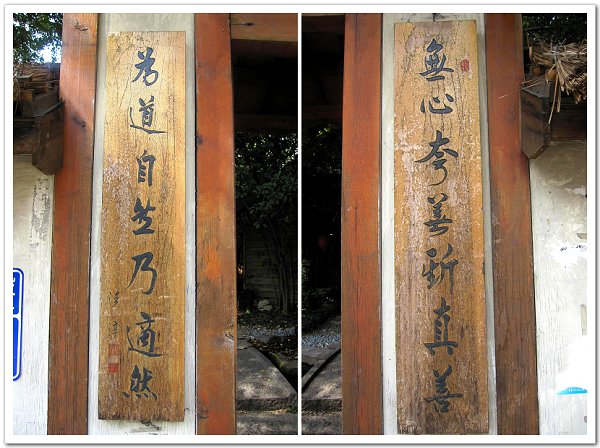 無心夸善斯真善
為道自然乃適然